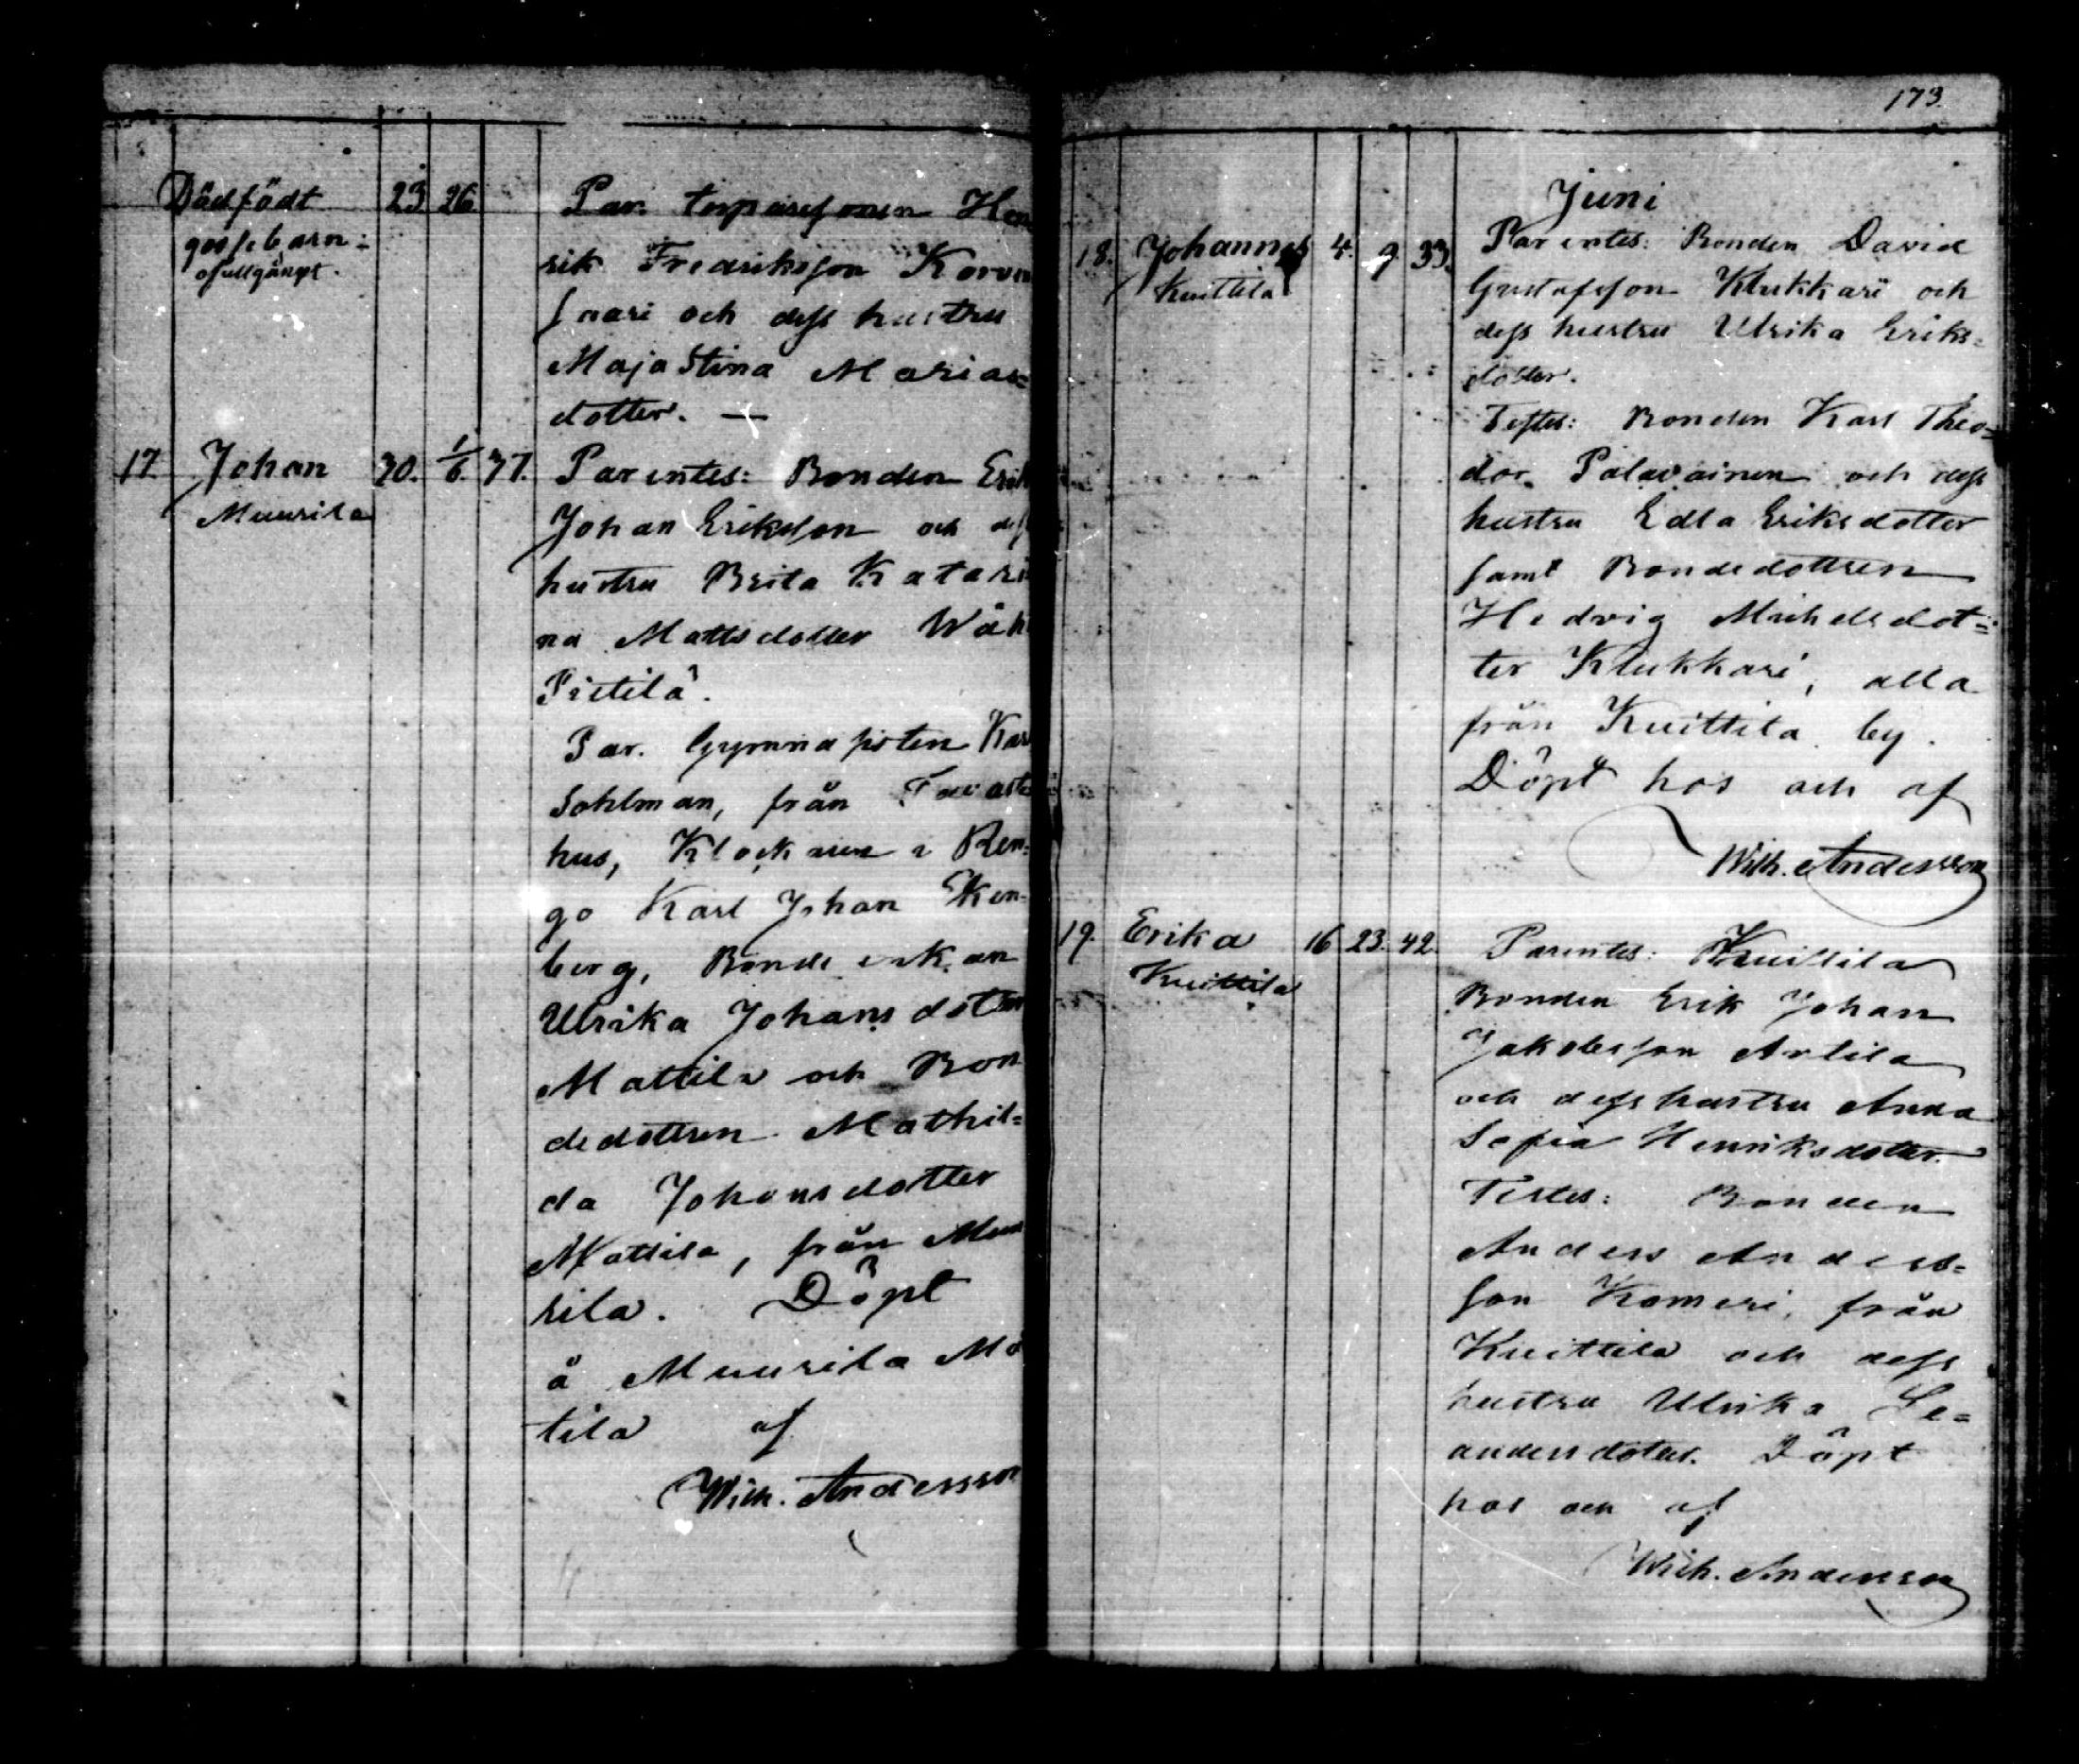 Dödfödt 23 26 Par. torparesonen Hen
gossebarn:
ofullgånget.
rik Fredriksson Korven
suari och dess hustru
Maja Stina Marias=
dotter. —
17. Johan 30. 1/6. 37. Parentes: Bonden Erik
Muurila
Johan Eriksson och dess
hustru Brita Katari
na Mattsdotter Wäh
Pietilä.
Par. Gymnasisten Kar
Sohlman, från Tavaste
hus, Klockaren i Ren=
go Karl Johan Eken=
berg, Bonde enkan
Ulrika Johansdotter
Mattila och Bon
dedottren Mathil=
da Johansdotter
Mattila, från Muu
rila. Döpt
å Muurila Ma
tila af
Wilh. Andersson
173.
Juni
18. Johannes 4. 9 33. Parentes: Bonden David
Kuittila
Gustafsson Klukkari och
dess hustru Ulrika Eriks=
dotter.
Testes: Bonden Karl Theo=
dor Palavainen och dess
hustru Edla Eriksdotter
samt Bondedottren
Hedvig Michelsdot=
ter Klukkari, alla
från Kuittila by.
Döpt hos och af
Wilh. Andersson
19. Erika 16 23. 42. Parentes: Kuittila
Kuittila
Bonden Erik Johan
Jakobsson Antila
och dess hustru Anna
Sofia Henriksdotter.
Testes: Bonden
Anders Anders=
son Komeri, från
Kuittila och dess
hustru Ulrika Le=
andersdotter. Döpt
hos och af
Wilh. Andersson